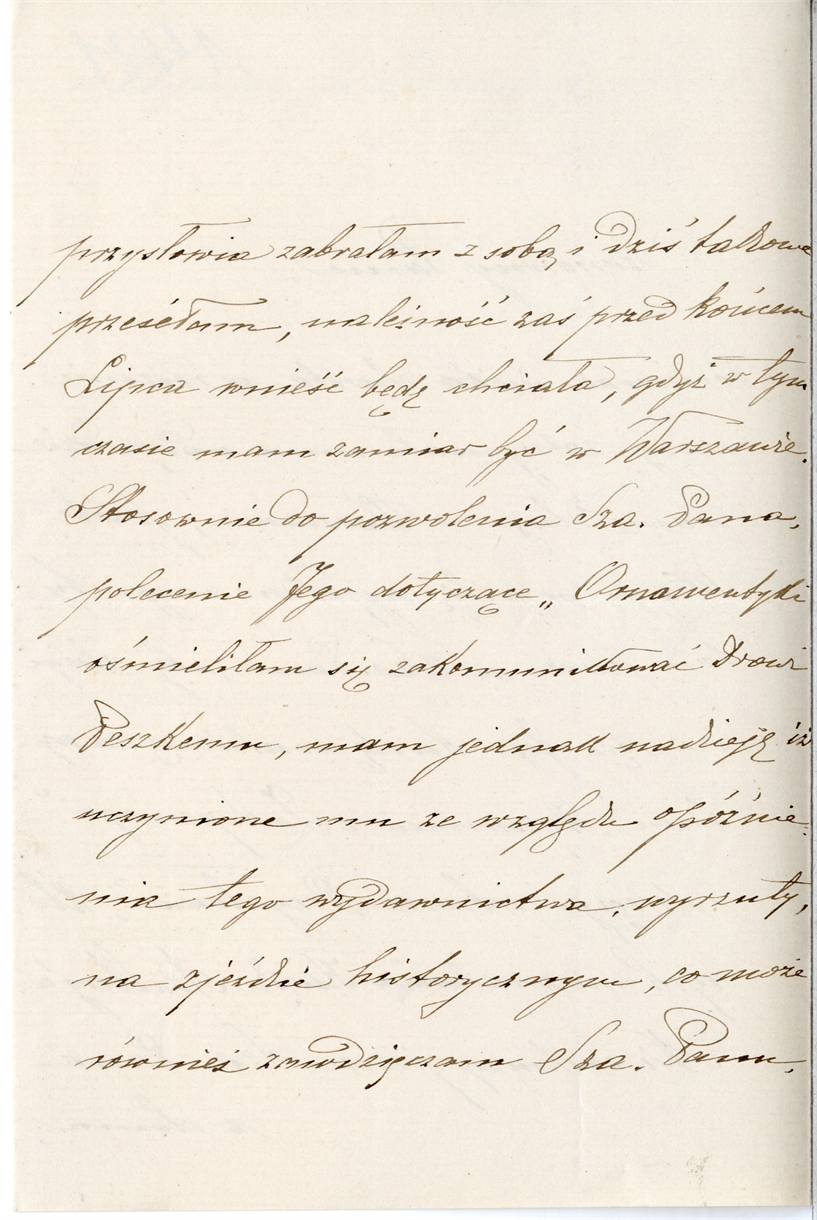 przysłowia zabrałam z sobą i dziś takowe
przesełam, należność zaś przed końcem
Lipca wnieść będę chciała, gdyż w tym
czasie mam zamiar być w Warszawie.
Stosownie do pozwolenia Sza. Pana,
polecenie Jego dotyczące „Ornamentyki
ośmieliłam się zakomunikować Drowi
Peszkemu, mam jednak nadzieję iż
uczynione mu ze względu opóźnie-
nia tego wydawnictwa, wyrzuty,
na zjeździe historycznym, co może
również zawdzięczam Sza. Panu,